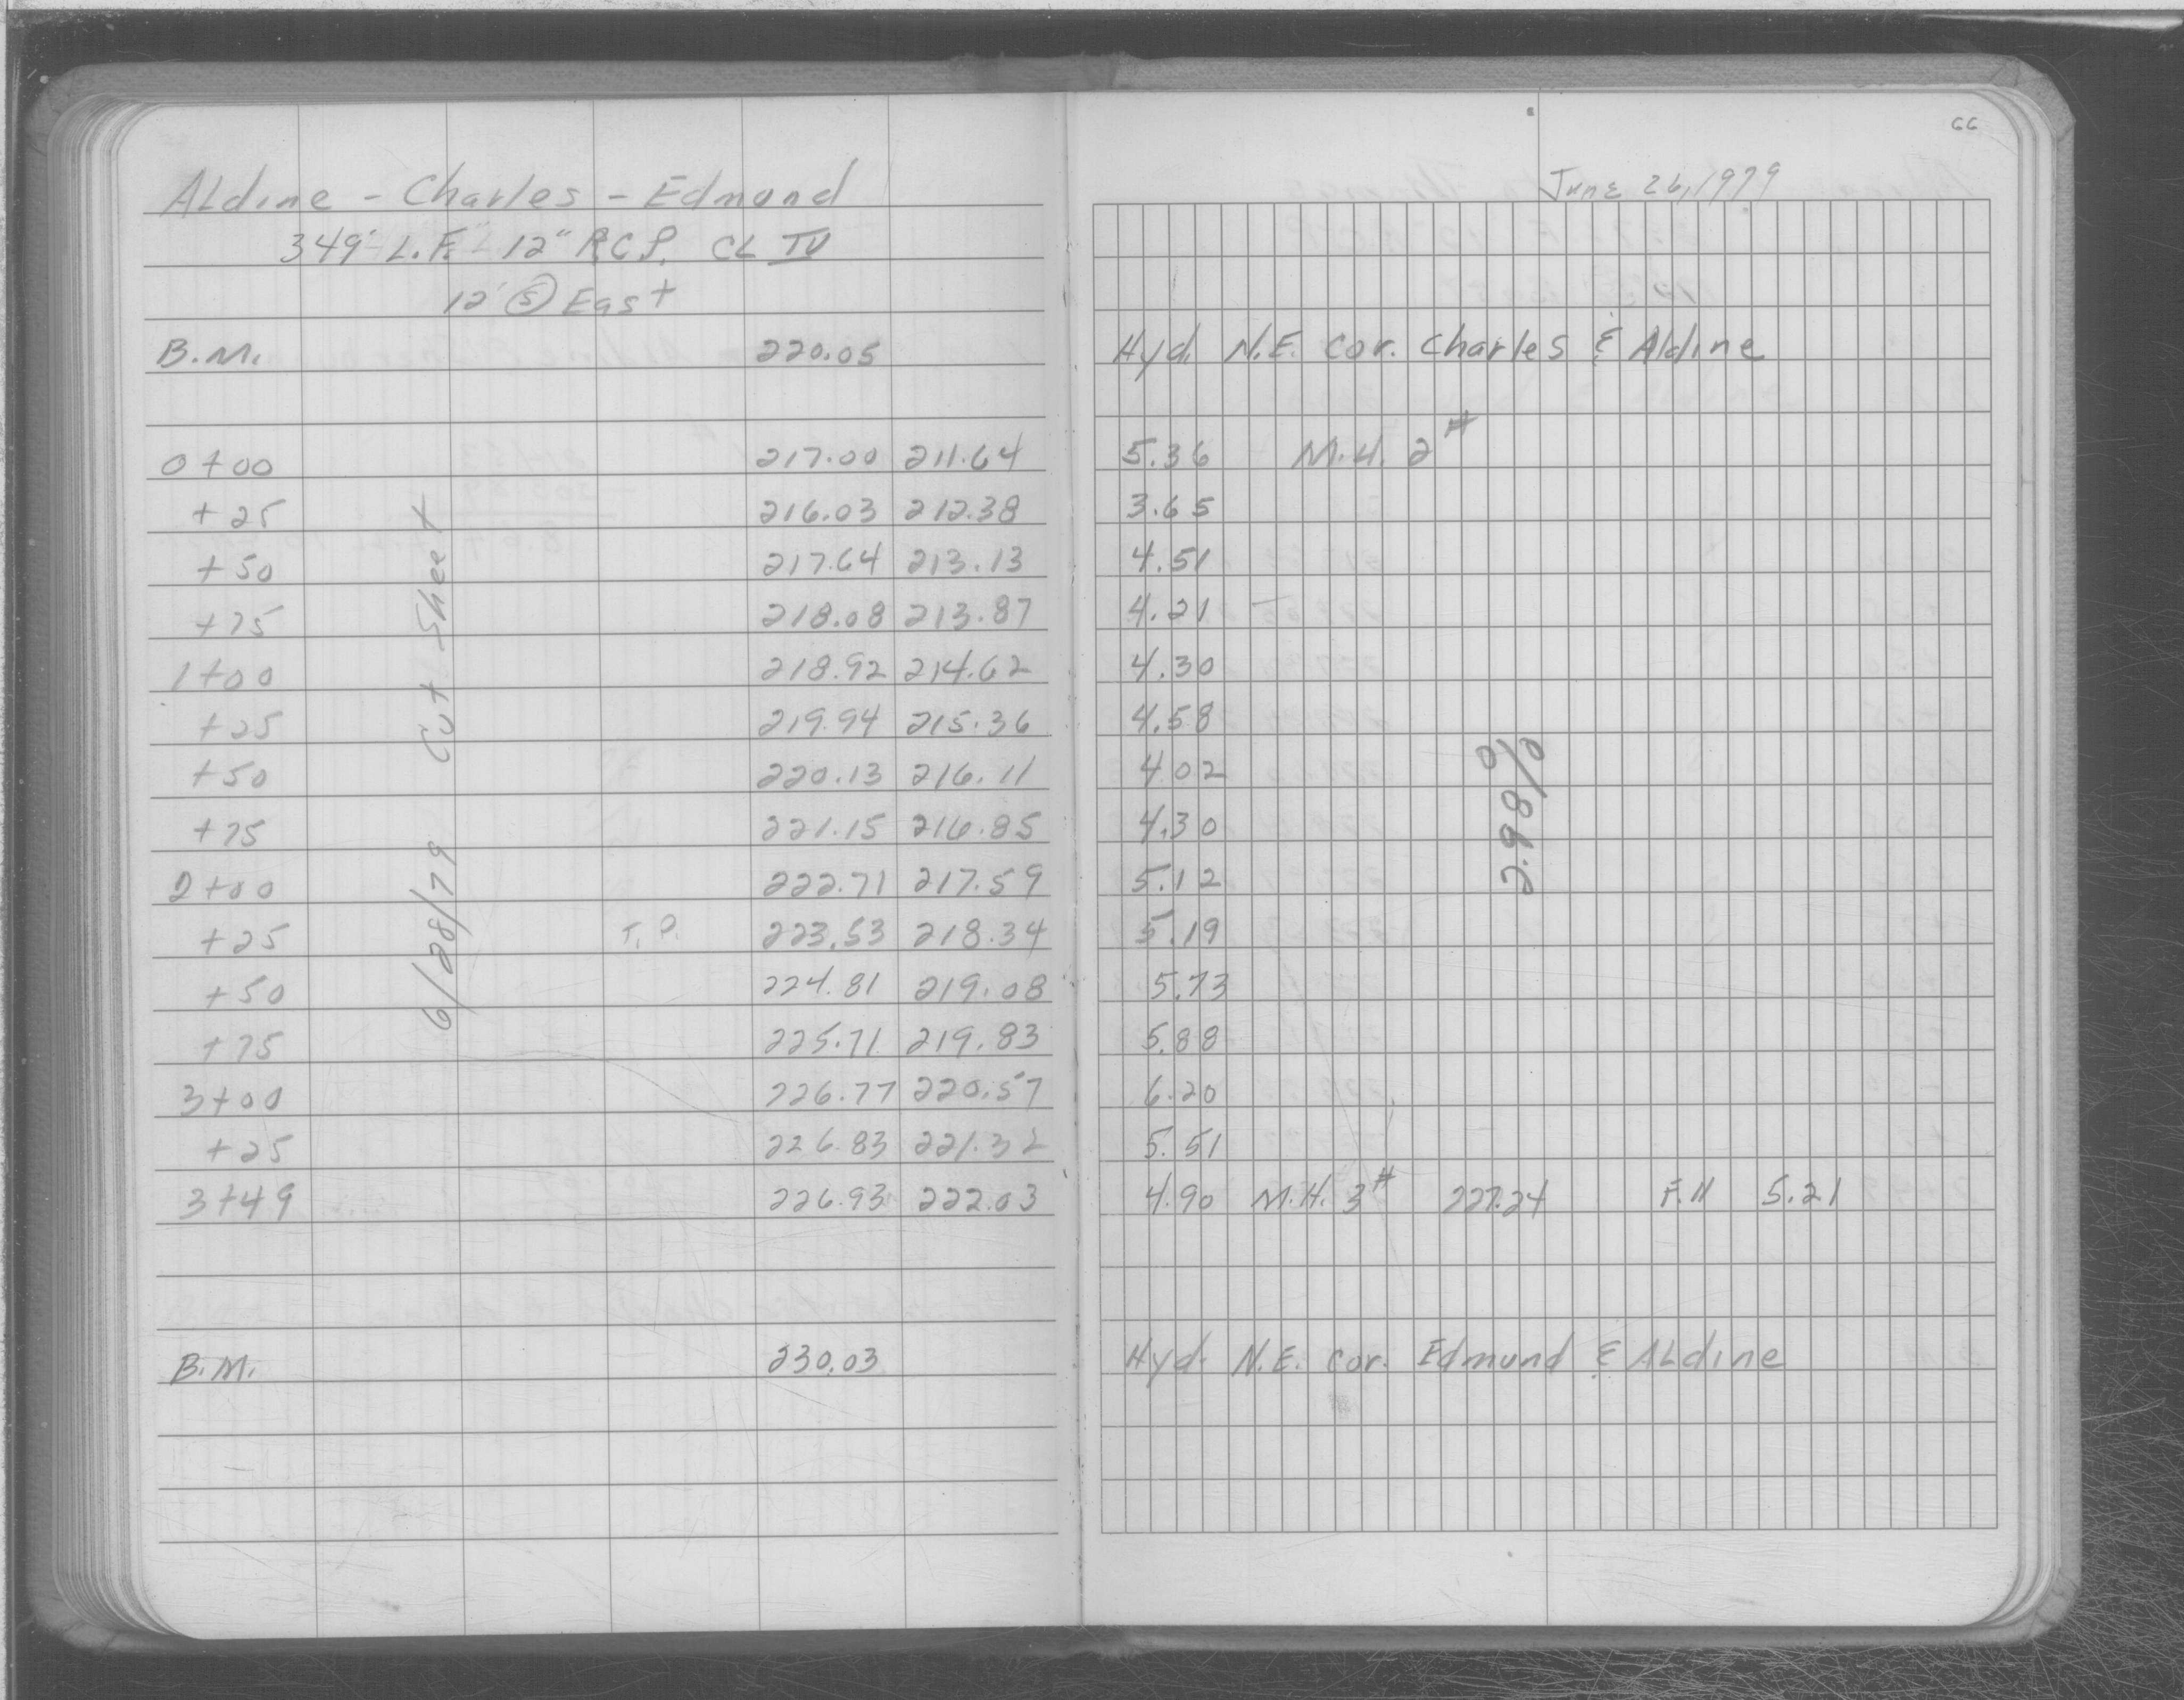 66
Aldine - Charles - Edmund June 26, 1979
349' L.F. 12" R.C.P. CL IV
12' Ⓢ East
B.M. 220.05 Hyd. N.E. cor. Charles & Aldine
0+00 217.00 211.64 5.36 M.H. 2#
+25 216.03 212.38 3.65
+50 217.64 213.13 4.51
+75 218.08 213.87 4.21
1+00 218.92 214.62 4.30
+25 219.94 215.36 4.58
+50 220.13 216.11 4.02
+75 221.15 216.85 4.30
2+00 222.71 217.59 5.12
+25 T.P. 223.53 218.34 5.19
+50 224.81 219.08 5.73
+75 225.71 219.83 5.88
3+00 226.77 220.57 6.20
+25 226.83 221.32 5.51
3+49 226.93 222.03 4.90 M.H. 3# 227.24 F.H 5.21
B.M. 230.03 Hyd. N.E. cor. Edmund & Aldine
6/28/79 Cut Sheet
2.98%